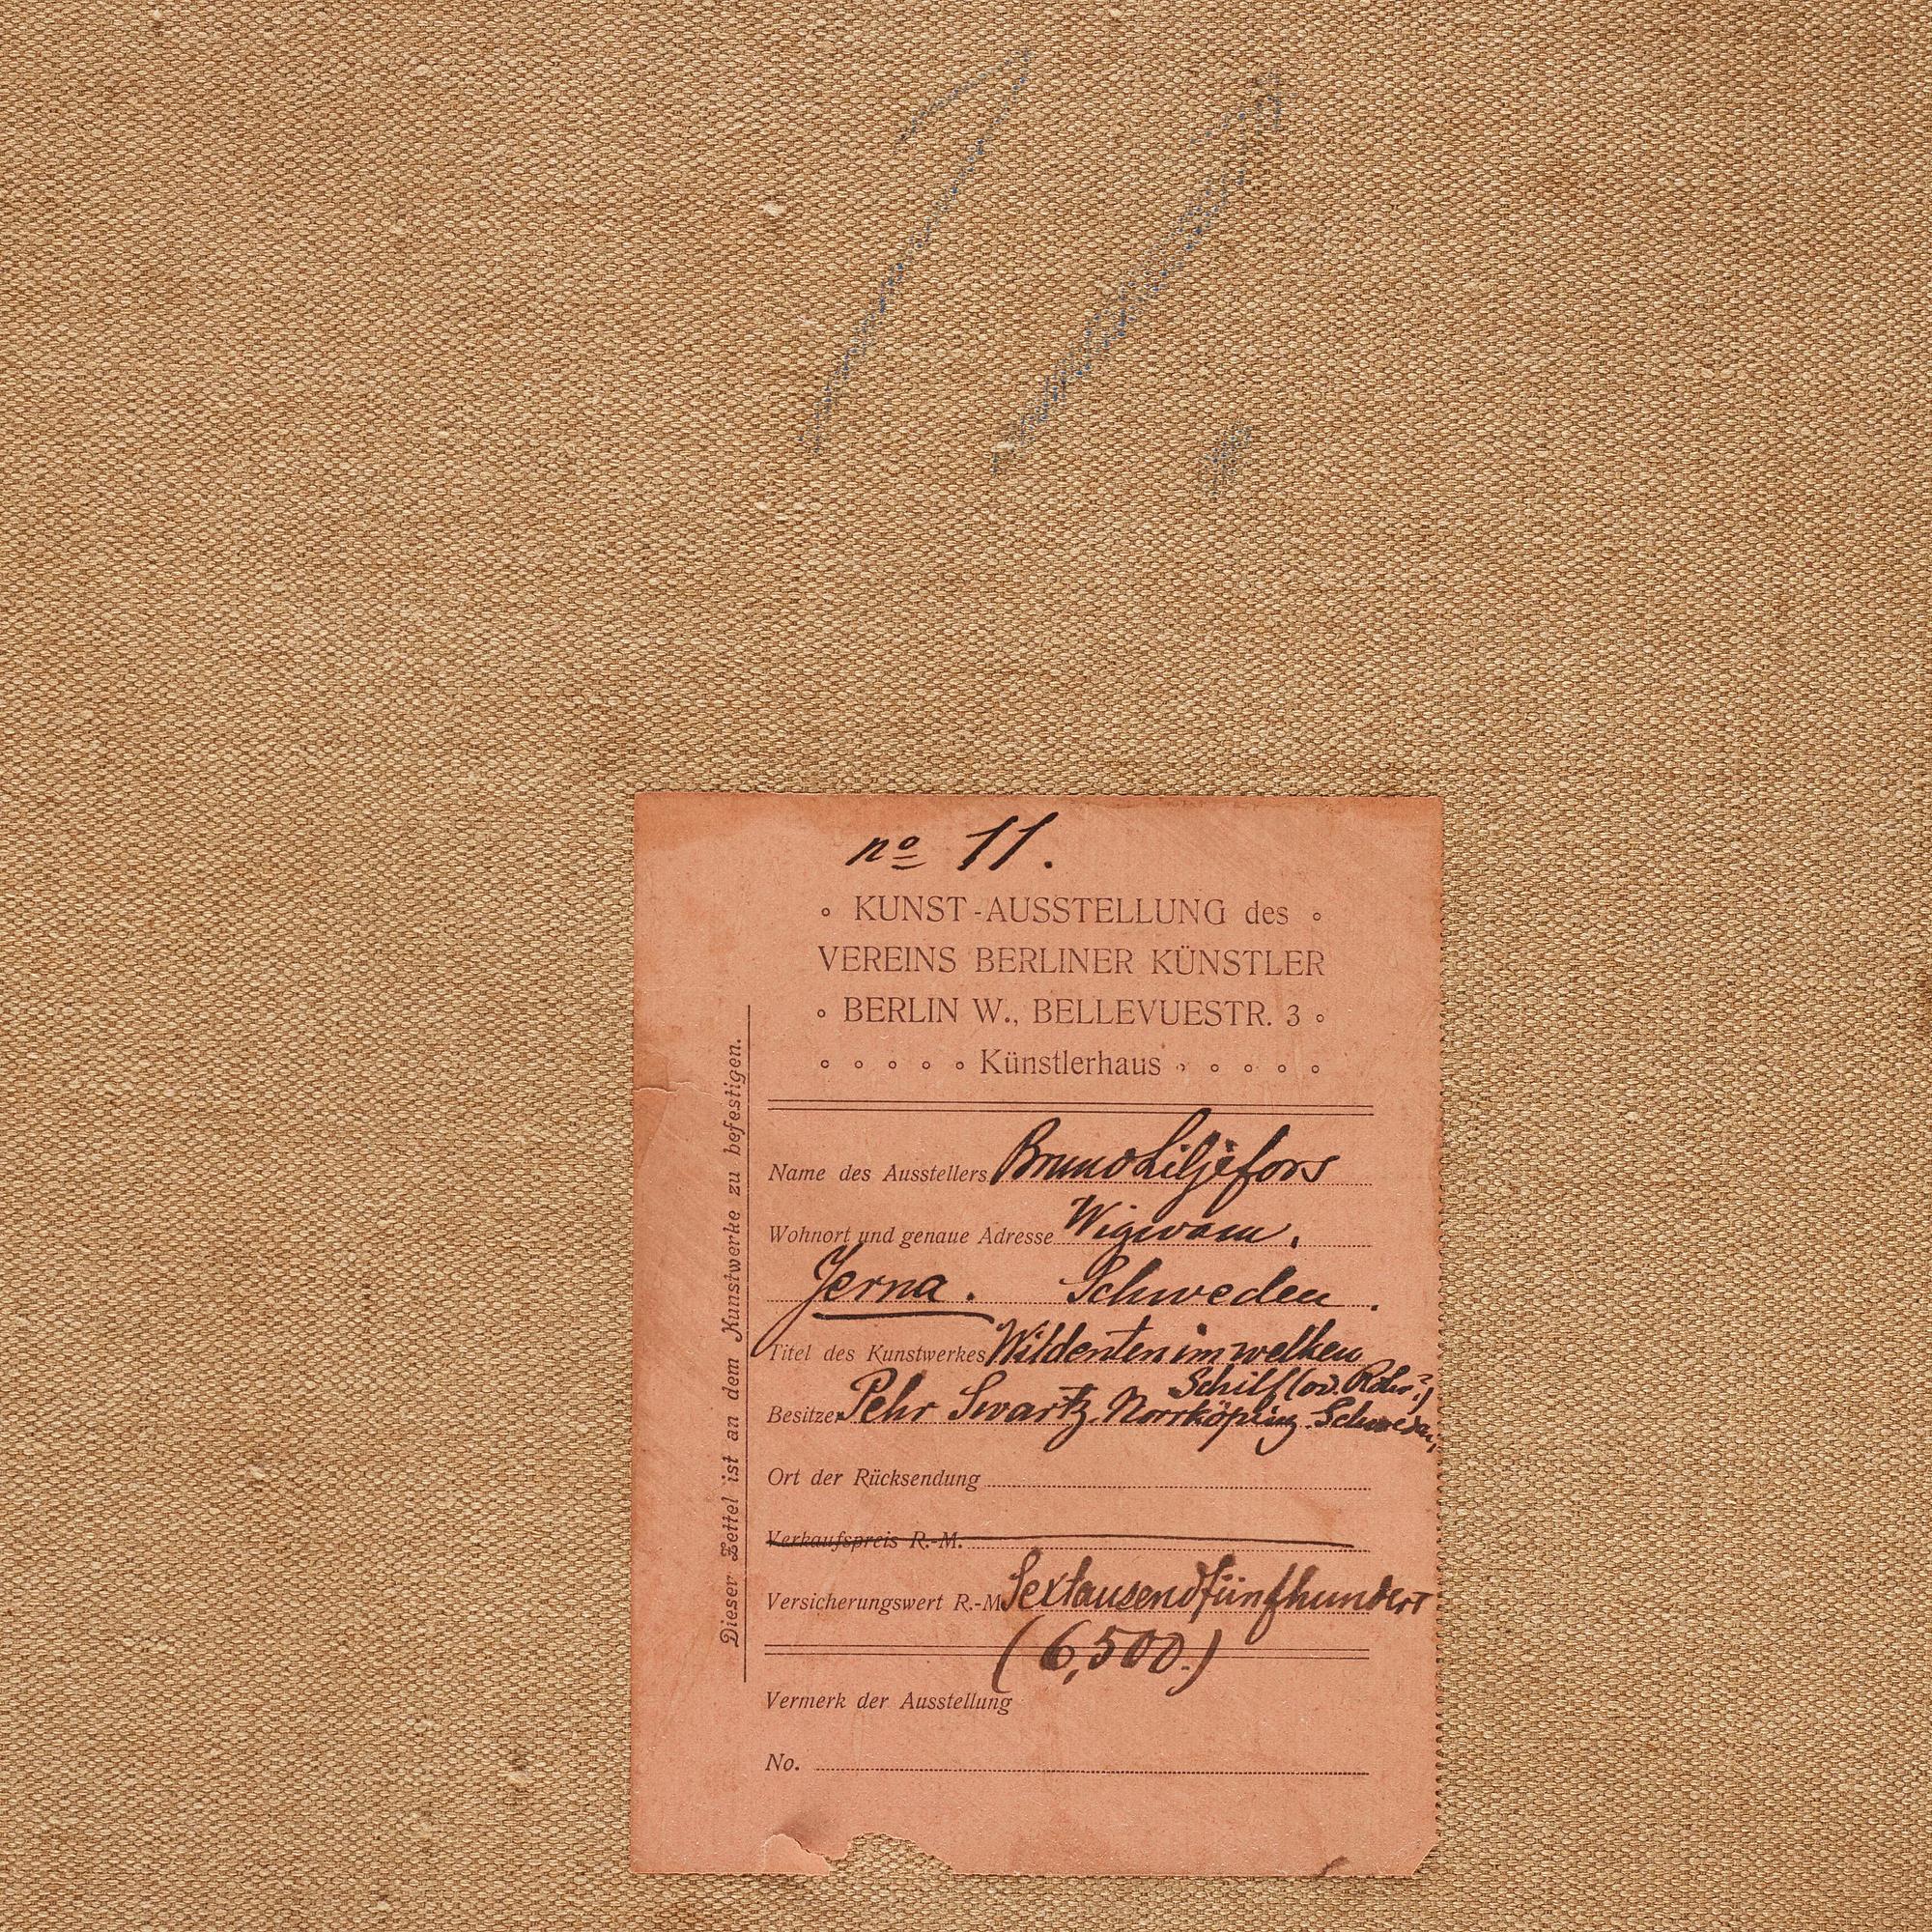 11.
nº 11.
KUNST-AUSSTELLUNG des
VEREINS BERLINER KÜNSTLER
BERLIN W., BELLEVUESTR. 3
Künstlerhaus
Dieser Zettel ist an dem Kunstwerke zu befestigen.
Name des Ausstellers Bruno Liljefors
Wohnort und genaue Adresse Wigwam.
Jerna. Schweden.
Titel des Kunstwerkes Wildenten im welken
Schilf (od. Rohr?)
Besitzer Pehr Swartz. Norrköping. Schweden,
Ort der Rücksendung
Verkaufspreis R.-M.
Versicherungswert R.-M. Sextausendfünfhundert
(6,500.)
Vermerk der Ausstellung
No.